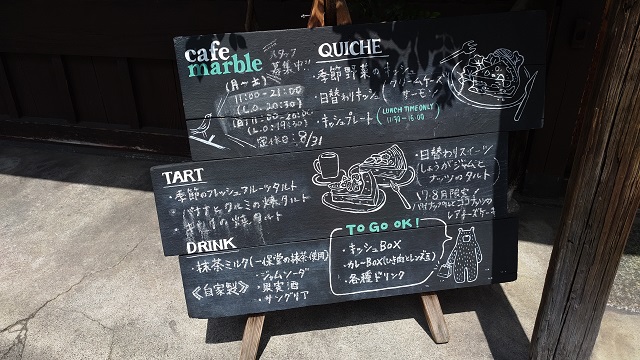 cafe
marble
スタッフ
募集中!!
(月〜土)
11:00-21:00
(L.O. 20:30)
(日)11:00-20:00
(L.O: 19:30)
定休日: 8/31
QUICHE
・季節野菜のキッシュ
・日替わりキッシュ(クリームチーズ
サーモン)
・キッシュプレート(LUNCH TIME ONLY
11:30-15:00)
TART
・季節のフレッシュフルーツタルト
・バナナとクルミの焼タルト
の焼タルト
・日替わりスイーツ
(しょうがジャムと
ナッツのタルト
7・8月限定!
パイナップルとココナッツの
レアチーズケーキ
DRINK
・抹茶ミルク(一保堂の抹茶使用)
《自家製》
・ジャムソーダ
・果実酒
・サングリア
TO GO OK!
・キッシュBOX
・カレーBOX(ひき肉とレンズ豆)
・各種ドリンク